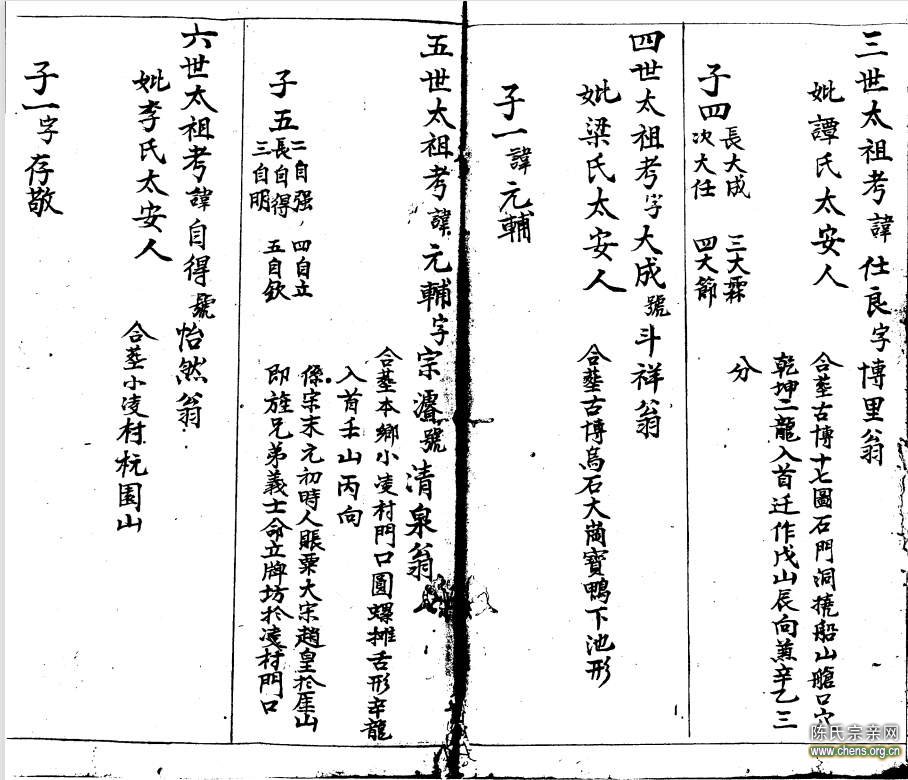 三世太祖考諱仕良字博里翁
妣譚氏太安人
合塟古博十七圖石門洞撓船山艙口穴
乾坤二龍入首迁作戊山辰向兼辛乙三
分
子四
長大成
次大任
三大霖
四大節
四世太祖考字大成號斗祥翁
妣梁氏太安人
合塟古博烏石大崗寶鴨下池形
子一諱元輔
五世太祖考諱元輔字宗濬號清泉翁
合塟本鄉小凌村門口圓螺攤舌形辛龍
入首壬山丙向
係宋末元初時人賬粟大宋趙皇於厓山
即旌兄弟義士命立牌坊於凌村門口
子五
二自强
長自得
三自明
四自立
五自欽
六世太祖考諱自得號怡然翁
妣李氏太安人
合塟小凌村杬園山
子一字存敬
陈氏宗亲网
www.chens.org.cn